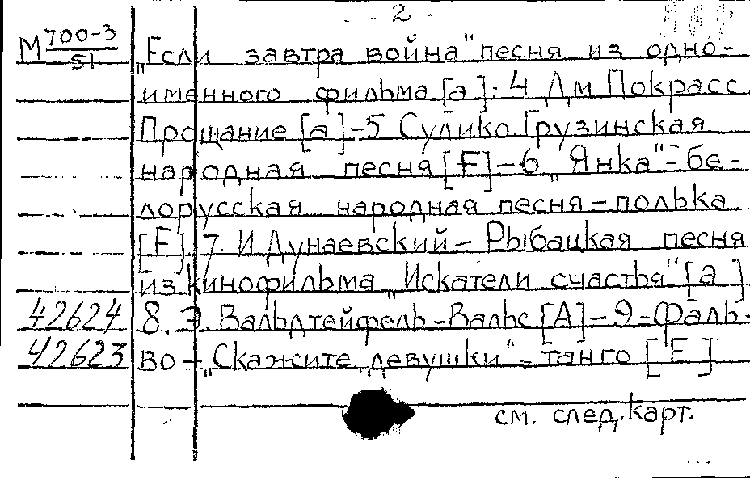 - 2 -
М 700-3/51 „Если завтра война" песня из одно-
именного фильма [а]. 4 Дм Покрасс
Прощание [а]-5 Сулико Грузинская
народная песня [F]-6 „Янка"-бе-
лорусская народная песня-полька
[F] 7 И Дунаевский- Рыбацкая песня
из кинофильма „Искатели счастья" [а]
42624 8. Э. Вальдтейфель-Вальс [А]-9-Фаль-
42623 во-„Скажите, девушки"-танго [F]
см. след. карт.